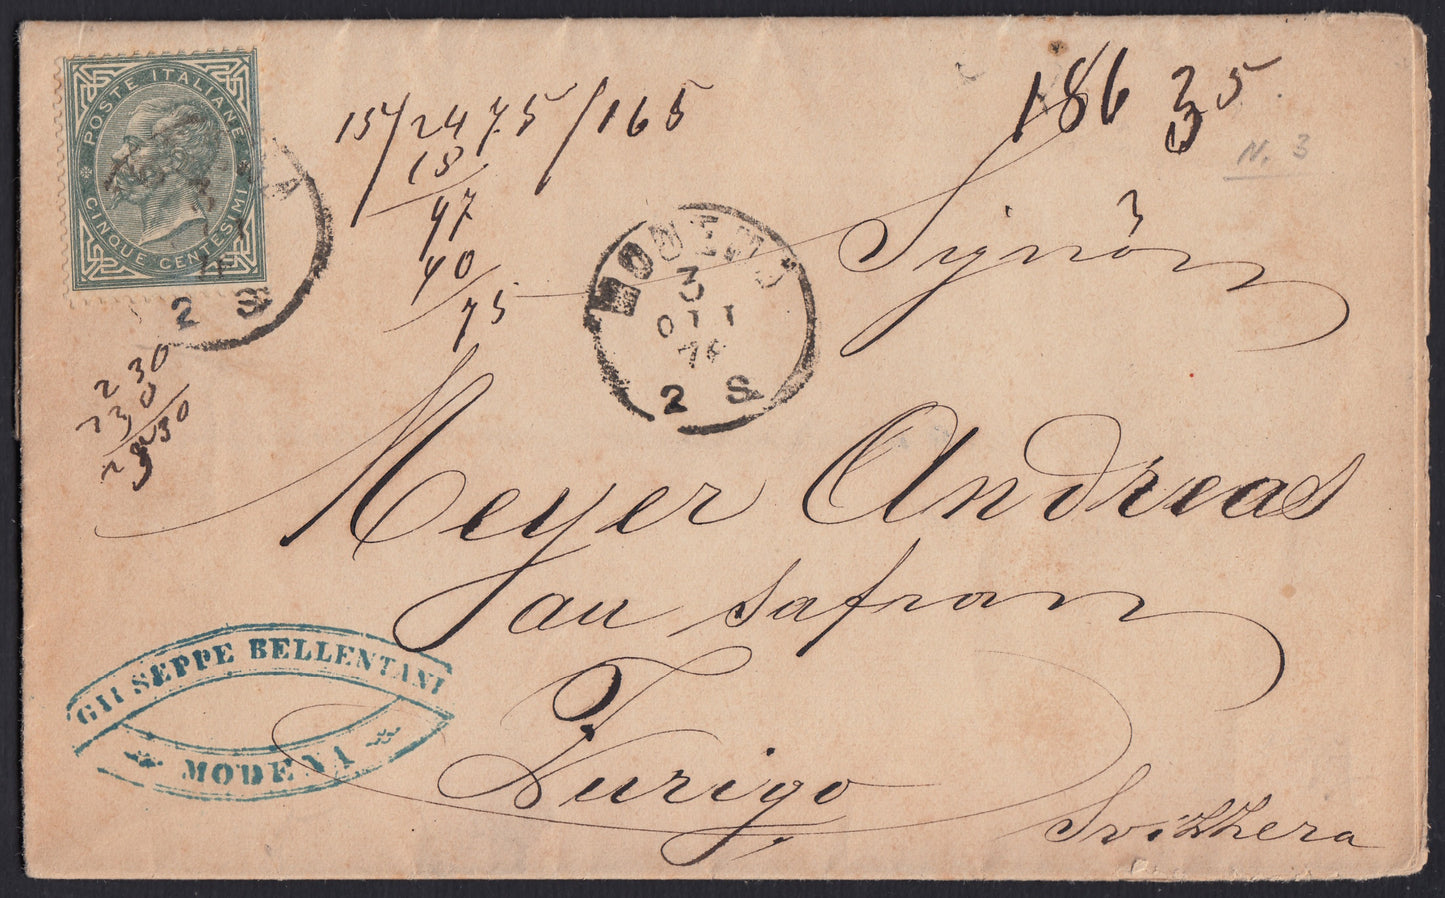 POSTE ITALIANE
CINQUE CENTESIMI
2 S
15/2475/165
18
47
40
75
186 35
N. 3
MODENA
3
OTT
74
2 S
Signor
230
Meyer Andreas
au Safran
Zurigo
Svizzera
GIUSEPPE BELLENTANI
MODENA